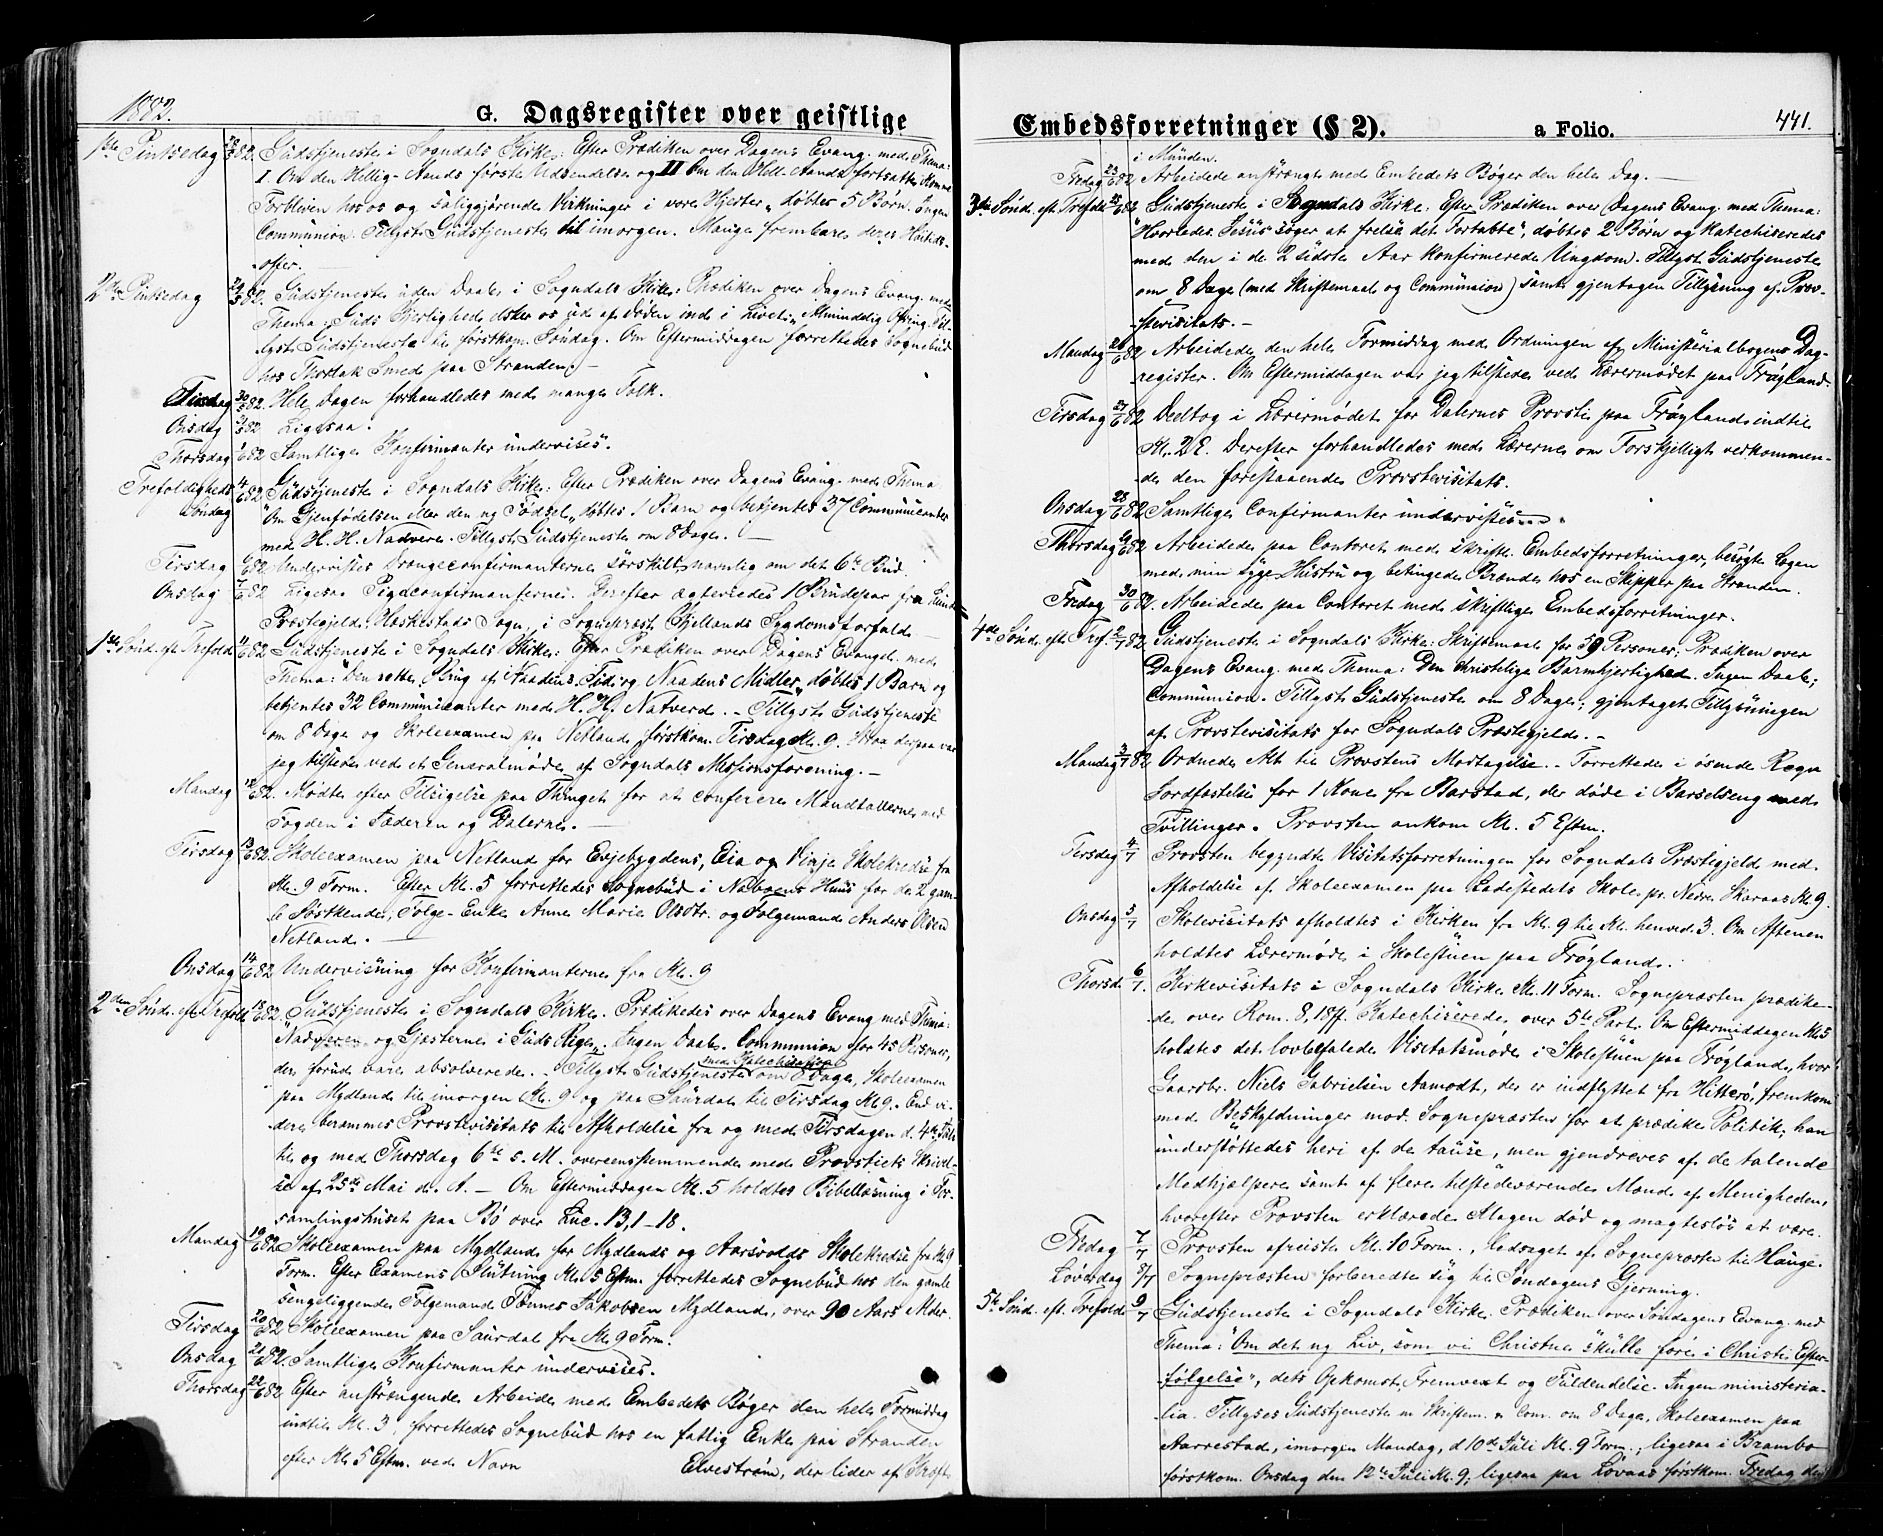 1882.
G. Dagsregister over geistlige
1ste Pintsedag 28/5 82. Gudstjeneste i Sogndals Kirke: Efter Prædiken over Dagens Evang. med Thema:
I. Om den Hellig-Aands første Udsendelse og II Om den Hell. Aands fortsatte Komme
Forbliven hos os og saliggjørende Virkninger i vore Hjerter„ døbtes 5 Børn. Ingen
Communion. Tillyst Gudstjeneste til imorgen. Mange frembare deres Høitids-
offer.
2den Pintsedag 29/5 82. Gudstjeneste uden Daab i Sogndals Kirke: Prædiken over Dagens Evang. med
Thema: Guds Kjærlighed
lyst Gudstjeneste til førstkom. Søndag. Om Eftermiddagen forrettedes Sognebud
hos Thorlak Smed paa Stranden.
Tirsdag 30/5 82. Hele Dagen forhandledes med mange Folk.
Onsdag 31/5 82 Ligesaa.
Thorsdag 1/6 82 Samtlige Konfirmanter undervises.
Trefoldigheds 4/6 82 Gudstjeneste i Sogndals Kirke: Efter Prædiken over Dagens Evang. med Thema
Søndag "Om Gjenfødelsen eller den ny Fødsel„ døbtes 1 Barn og betjentes 37 Communicanter
med H. H. Nadvere. Tillyst Gudstjeneste om 8 Dage.
Tirsdag 6/6 82 Undervistes Drengeconfirmanterne særskilt, navnlig om det 6te Bud.
Onsdag 7/6 82 Ligesaa Pigeconfirmanterne. Derefter ægteviedes 1 Brudepar fra Lunde
Præstegjeld, Heskestads Sogn, i Sognepræst Kjellands Sygdomsforfald.
1ste Sønd. eft. Trefold. 11/6 82 Gudstjeneste i Sogndals Kirke: Efter Prædiken over Dagens Evangel. med
Thema: "Den rette Brug af Naadens Tid og Naadens Midler„ døbtes 1 Barn og
betjentes 32 Communicanter med H. H. Natverd. - Tillyst Gudstjeneste
om 8 Dage og Skoleexamen paa Netland førstkom. Tirsdag Kl. 9. Strax derpaa var
jeg tilstede ved et Generalmøde af Sogndals Missionsforening. -
Mandag 12/6 82. Mødte efter Tilsigelse paa Thinget for at conferere Mandtallerne med
Fogden i Jæderen og Dalerne.
Tirsdag 13/6 82. Skoleexamen paa Netland for Evjebygdens, Eia og Vinje Skolekredse fra
Kl. 9 Form. Efter Kl. 5 forrettedes Sognebud i Naboens Huus for de 2 gam-
le Søskende, Folge-Enke Anne Marie Olsdtr. og Folgemand Anders Olsen
Netland.
Onsdag 14/6 82 Undervisning for Konfirmanterne fra Kl. 9
2den Sønd. eft. Trefold. 18/6 82. Gudstjeneste i Sogndals Kirke. Prædikedes over Dagens Evang. med Thema:
"Nadveren og Gjesterne i Guds Rige„. Ingen Daab. Communion for 45 Personer,
der forud vare absolverede. - Tillyst Gudstjeneste med Katechisation om 8 Dage, Skoleexamen
paa Mydland til imorgen Kl. 9 og paa Saurdal til Tirsdag Kl. 9. End vi-
dere berammes Provstevisitats til Afholdelse fra og med Tirsdagen d. 4de Juli
til og med Thorsdag 6te s. M. overensstemmende med Provstiets Skrivel-
se af 25de Mai d. A. - Om Eftermiddagen Kl. 5 holdtes Bibellæsning i For-
samlingshuset paa Bø over Luc. 13, 1-18.
Mandag 19/6 82 Skoleexamen paa Mydland for Mydlands og Aarsvolds Skolekredse fra Kl. 9
Form. Efter Examens Slutning Kl. 5 Eftm. forrettedes Sognebud hos den gamle
sengeliggende Folgemand Tønnes Jakobsen Mydland, over 90 Aars Alder.
Tirsdag 20/6 82 Skoleexamen paa Saurdal fra Kl. 9 Form.
Onsdag 21/6 82. Samtlige Konfirmanter undervises.
Thorsdag 22/6 82 Efter anstrengende Arbeide med Embedets Bøger den hele Formiddag
indtil Kl. 3, forrettedes Sognebud hos en fattig Enke paa Stranden
efter Kl. 5 Eftm. ved Navn Elvestrøm, der lider af Kræft
Embedsforretninger (§ 2).
a Folio.
441.
i Munden.
Fredag 23/6 82 Arbeidede anstrængt med Embedets Bøger den hele Dag.
3die Sønd. eft. Trefold. 25/6 82 Gudstjeneste i Sogndals Kirke: Efter Prædiken over Dagens Evang. med Thema:
"Hvorledes Jesus søger at frelse det Fortabte", døbtes 2 Børn og katechiseredes
med den i de 2 sidste Aar konfirmerede Ungdom. Tillyst Gudstjeneste
om 8 Dage (med Skriftemaal og Communion) samt gjentagen Tillysning af Prov-
stevisitats. -
Mandag 26/6 82 Arbeidede den hele Formiddag med Ordningen af Ministerialbogens Dag-
register. Om Eftermiddagen var jeg tilstede ved Lærermødet paa Frøyland.
Tirsdag 27/6 82 Deeltog i Lærermødet for Dalernes Provsti paa Frøyland indtil
Kl. 2 E. Derefter forhandledes med Lærerne om Forskjelligt vedkommen-
de den forestaaende Provstevisitats.
Onsdag 28/6 82 Samtlige Confirmanter undervistes
Thorsdag 29/6 82 Arbeidede paa Contoret med skriftl. Embedsforretninger, besøgte Lægen
med min syge Hustru og betingede Brænde hos en Skipper paa Stranden.
Fredag 30/6 82. Arbeidede paa Contoret med skriftlige Embedsforretninger.
4de Sønd. eft. Tref. 2/7 82. Gudstjeneste i Sogndals Kirke: Skriftemaal for 59 Personer; Prædiken over
Dagens Evang. med Thema: Den christelige Barmhjertighed. Ingen Daab;
Communion. Tillyst Gudstjeneste om 8 Dage; gjentaget Tillysningen
af Provstevisitats for Sogndals Præstegjeld. -
Mandag 3/7 82 Ordnede Alt til Provstens Modtagelse. - Forrettede i øsende Regn
Jordfæstelse for 1 Kone fra Barstad, der døde i Barselseng med
Tvillinger. Provsten ankom Kl. 5 Eftm.
Tirsdag 4/7 Provsten begyndte Visitatsforretningen for Sogndals Præstegjeld med
Afholdelse af Skoleexamen paa Ladestedets Skole pr. Nedre Skaraas Kl. 9.
Onsdag 5/7 Skolevisitats afholdtes i Kirken fra Kl. 9 til Kl. henved 3. Om Aftenen
holdtes Lærermøde i Skolestuen paa Frøyland.
Thorsd. 6/7. Kirkevisitats i Sogndals Kirke Kl. 11 Form. Sognepræsten prædike-
de over Rom. 8, 18ff. Katechiserede over 5te Part. Om Eftermiddagen Kl. 5
holdtes det lovbefalede Visitatsmøde i Skolestuen paa Frøyland, hvor
Gaardbr. Niels Gabrielsen Aamodt, der er indflyttet fra Hitterø, fremkom
med Beskyldninger mod Sognepræsten for at prædike Politik; han
understøttedes heri af de tause, men gjendreves af de talende
Medhjælpere samt af flere tilstedeværende Mænd af Menigheden,
hvorefter Provsten erklærede Klagen død og magtesløs at være.
Fredag 7/7 Provsten afreiste Kl. 10 Form., ledsaget af Sognepræsten til Hauge.
Løverdag 8/7 Sognepræsten forberedte sig til Søndagens Gjerning.
5te Sønd. eft. Trefold. 9/7 Gudstjeneste i Sogndals Kirke. Prædiken over Søndagens Evang. med
Thema: "Om det ny Liv, som vi Christne skulle føre i Christi Efter-
følgelse", dets Opkomst, Fremvext og Fuldendelse. Ingen ministeria-
lia. Tillyses Gudstjeneste m. Skriftem. & Com. om 8 Dage, Skoleexamen paa
Aarrestad, imorgen Mandag, d. 10de Juli Kl. 9 Form.; ligesaa i Brambo
førstkom. Onsdag den 12te Juli Kl. 9; ligesaa paa Løvaas førstkom. Fredag den